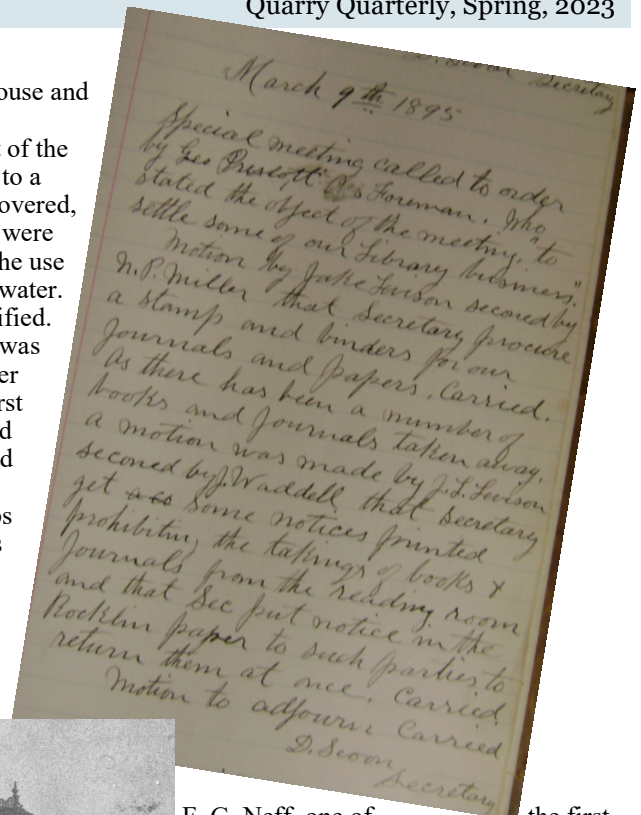 Quarry Quarterly, Spring, 2023
ouse and
t of the
to a
overed,
were
he use
water.
ified.
was
er
rst
d
d
os
s
Secretary
March 9th 1895
Special meeting called to order
by Geo Prescott as Foreman. Who
stated the object of the meeting, "to
settle some of our Library business".
Motion by Jake Levison seconed by
N.P. Miller that Secretary procure
a stamp and binders for our
Journals and papers. Carried.
As there has been a number of
books and Journals taken away,
a motion was made by J.L. Levison
seconed by J. Waddell that Secretary
get a co some notices printed
prohibiting the takings of books &
Journals from the reading room
and that Sec put notice in the
Rocklin paper to such parties to
return them at once. Carried
Motion to adjourn Carried
D. Swon
Secretary
E. G. Neff, one of
the first